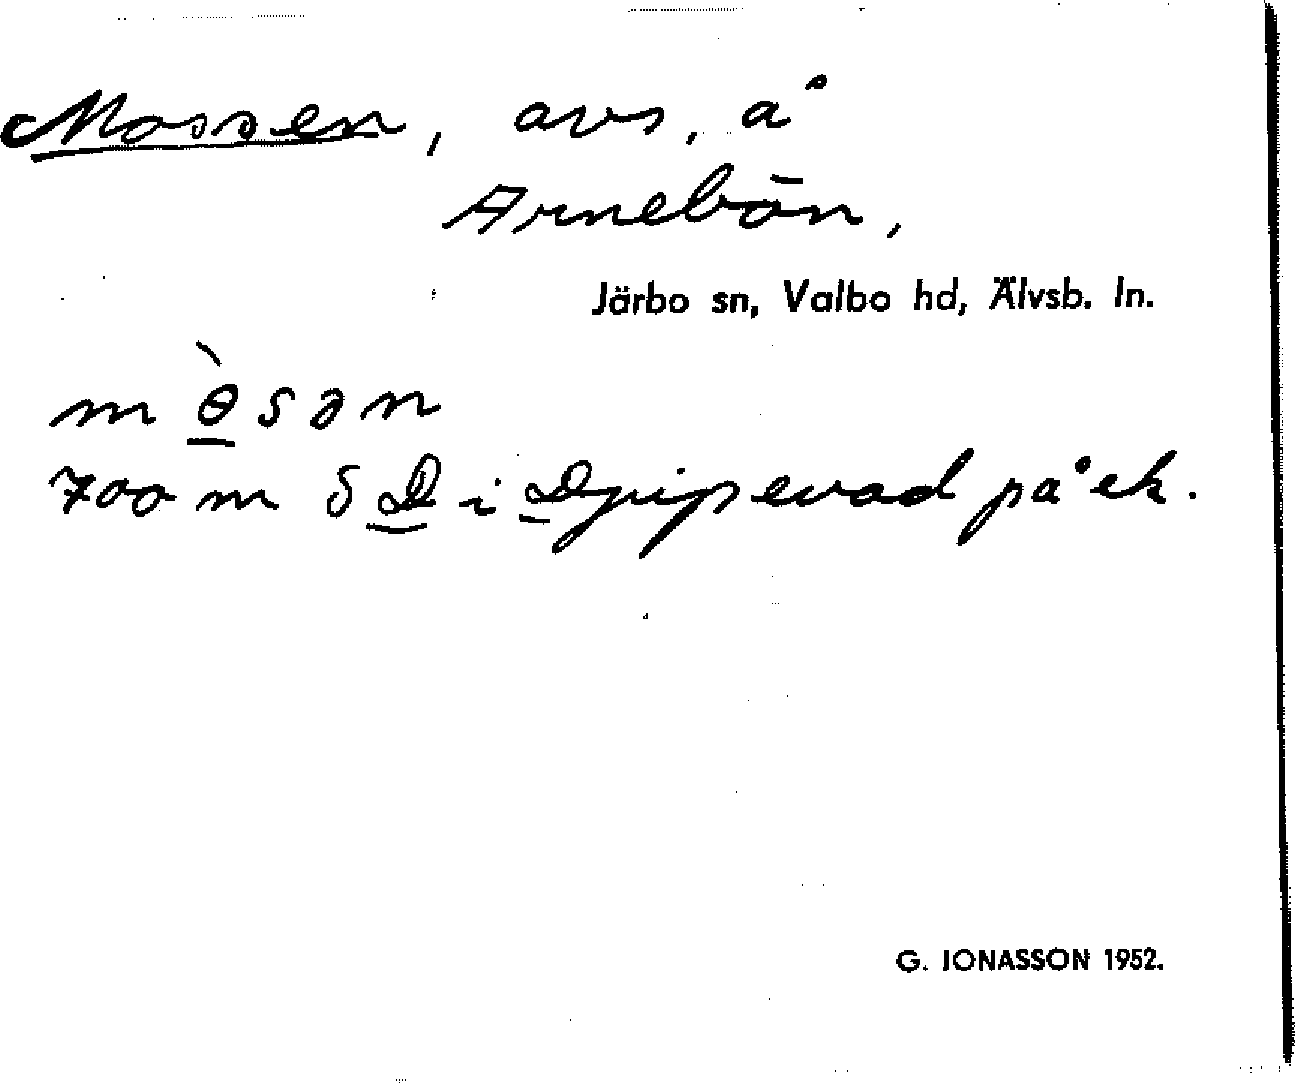 Mossen, avs. å
Arnebön,
Järbo sn, Valbo hd, Älvsb. ln.
mɵ̀sən
700 m S D i Djupevad på ek.
G. JONASSON 1952.